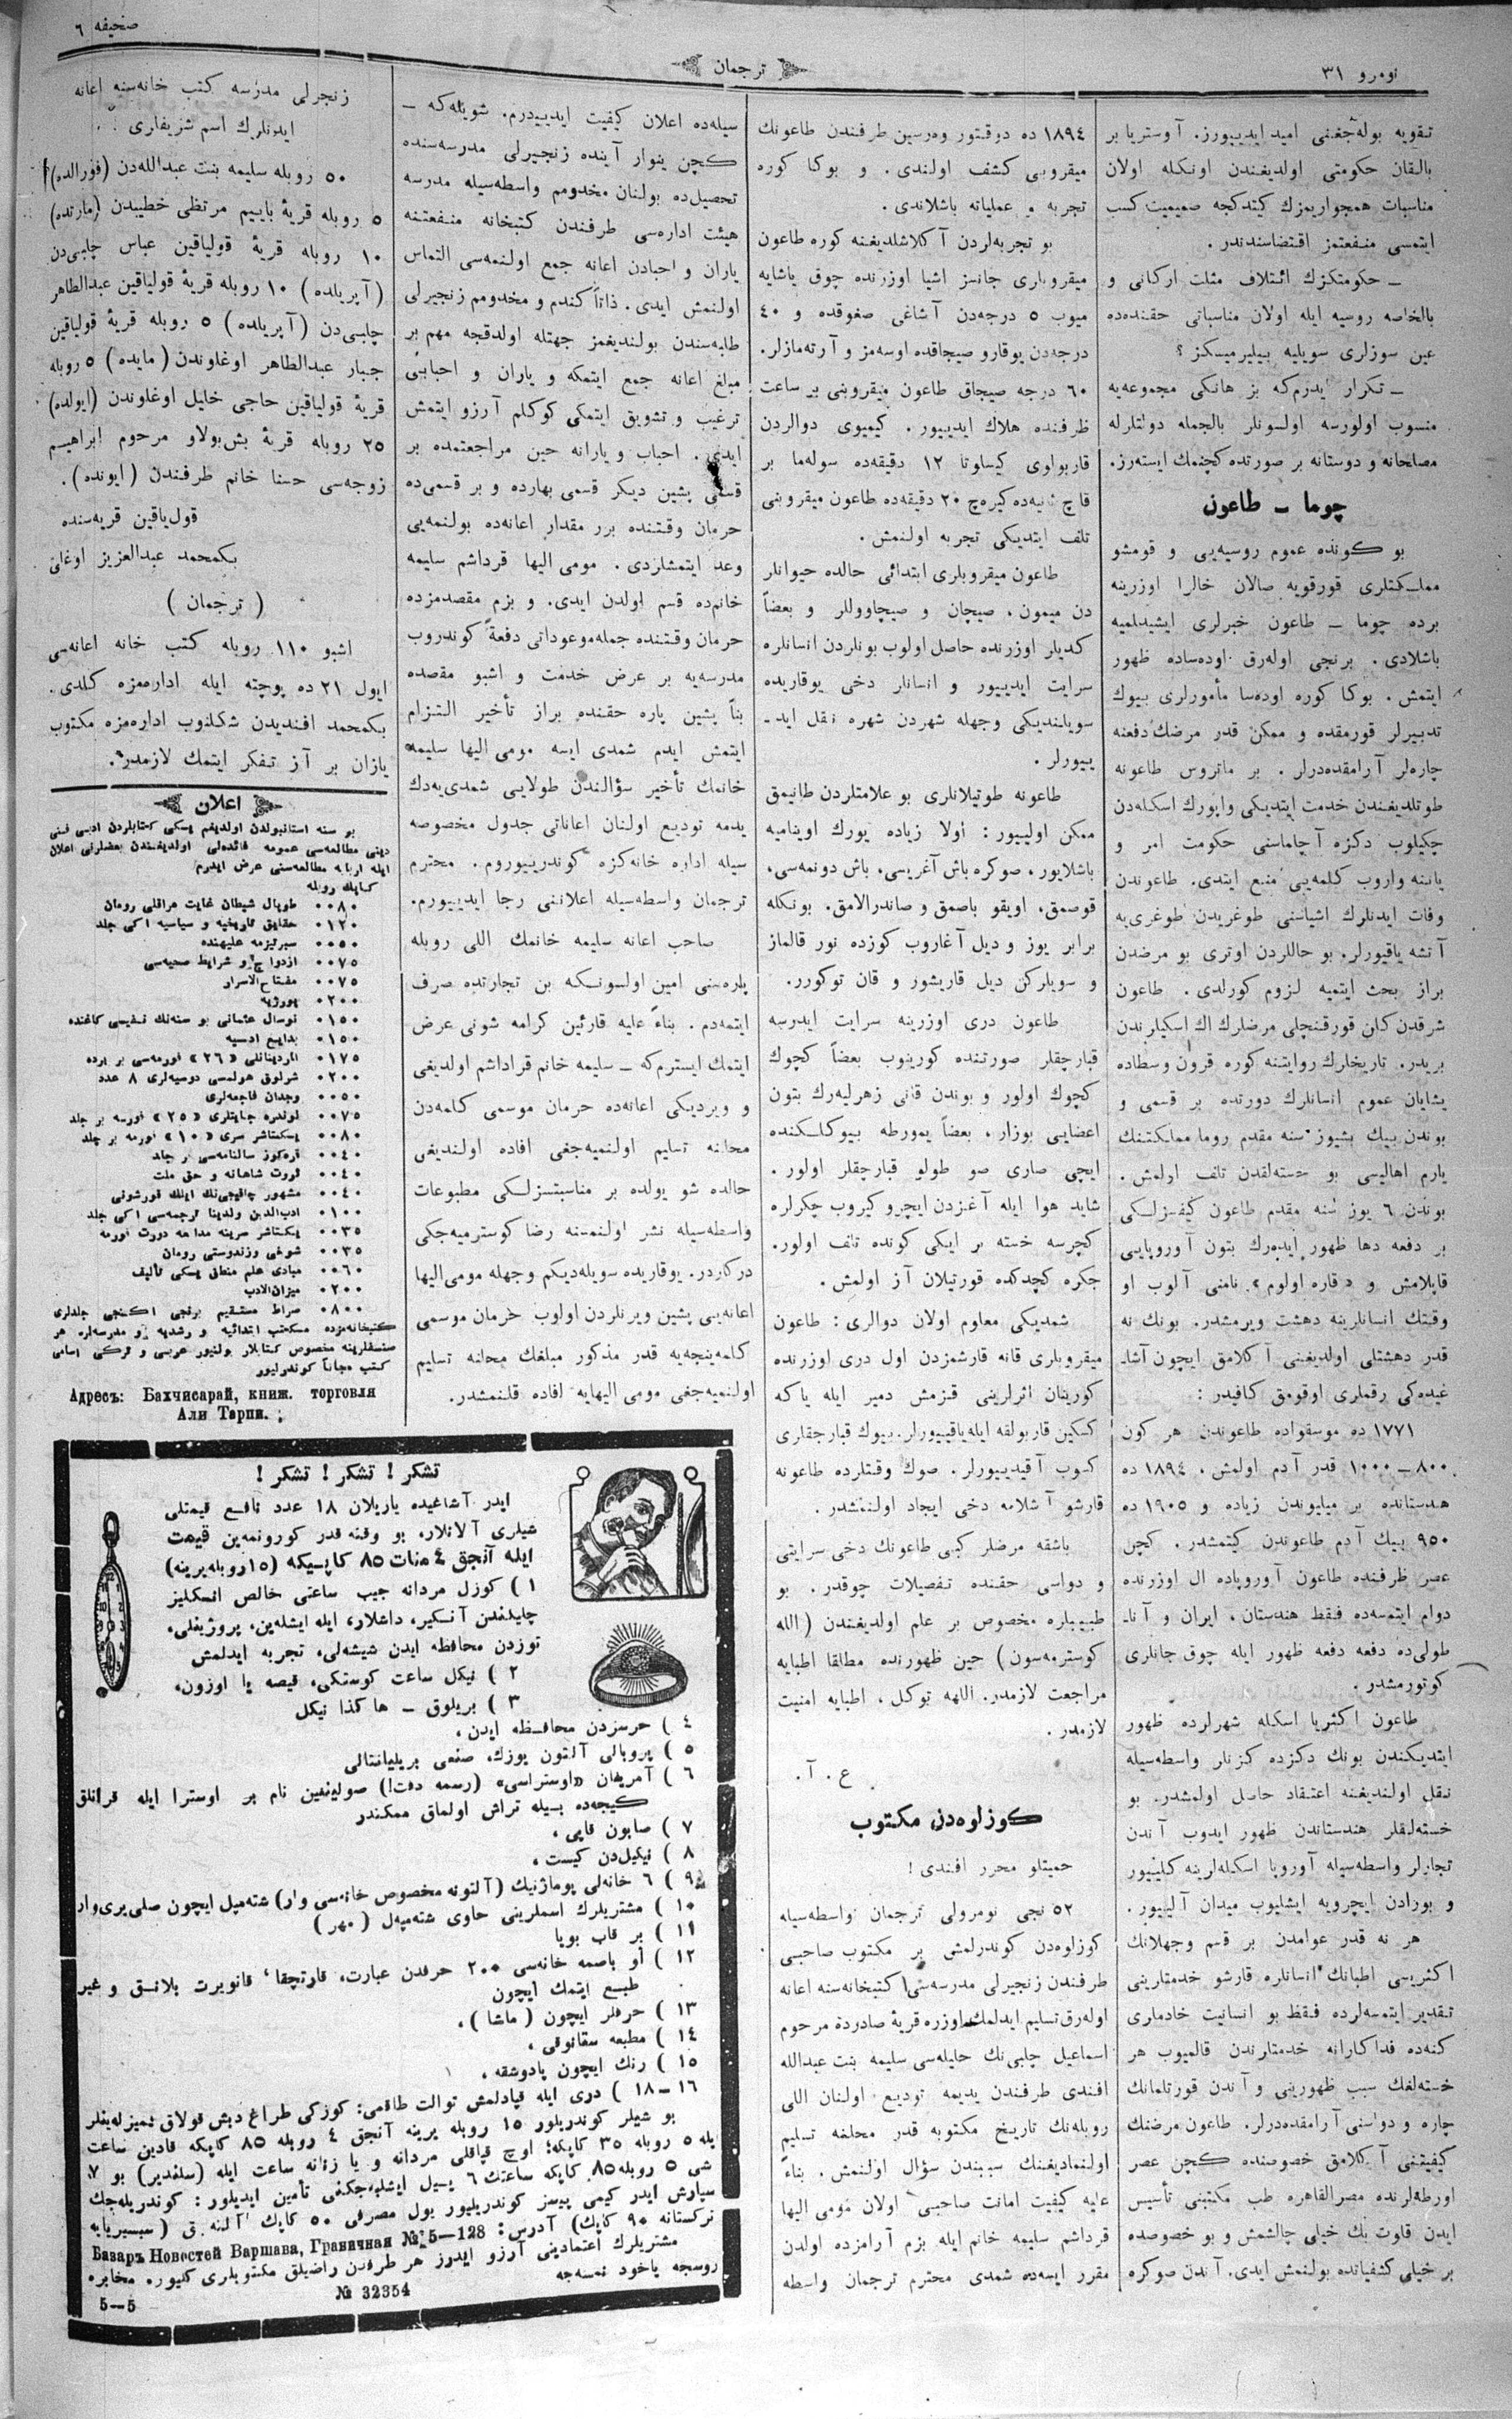 صحيفه ٦
ترجمان
نومرو ٣١
تقويه بوله‌جغنى اميد ايدييورز. آوستريا بر
بالقان حكومتى اولديغندن اونكله اولان
مناسبات همجواريمزك كيتدكجه صميميت كسب
ايتمسى منفعتمز اقتضاسندندر.
ـ حكومتكزك ائتلاف مثلث اركانى و
بالخاصه روسيه ايله اولان مناسباتى حقنده‌ده
عين سوزلرى سويليه بيليرميسكز؟
ـ تكرار ايدرم‌كه بز هانكى مجموعه‌يه
منسوب اولورسه اولسونلر بالجمله دولتلرله
مصلحانه و دوستانه بر صورتده كچنمك ايسته‌رز.
چوما ـ طاعون
بو كونده عموم روسيه‌يى و قومشو
مملكتلرى قورقويه صالان خالرا اوزرينه
برده چوما ـ طاعون خبرلرى ايشيدلميه
باشلادى. برنجى اوله‌رق اوده‌ساده ظهور
ايتمش. بوكا كوره اوده‌سا مأمورلرى بيوك
تدبيرلر قورمقده و ممكن قدر مرضك دفعنه
چاره‌لر آرامقده‌درلر. بر ماتروس طاعونه
طوتلديغندن خدمت ايتديكى واپورك اسكله‌دن
چكيلوب دكزه آچلماسنى حكومت امر و
ياننه واروب كلمه‌يى منع ايتدى. طاعوندن
وفات ايدنلرك اشياسنى طوغريدن طوغرى‌يه
آتشه ياقيورلر. بو حاللردن اوترى بو مرضدن
براز بحث ايتميه لزوم كورلدى. طاعون
شرقدن كلن قورقنچلى مرضلرك اك اسكيلرندن
بريدر. تاريخلرك روايتنه كوره قرون وسطاده
يشايان عموم انسانلرك دورتده بر قسمى و
بوندن بيك بشيوز سنه مقدم روما مملكتنك
يارم اهاليسى بو خسته‌لقدن تلف اولمش.
بوندن ٦ يوز سنه مقدم طاعون كيفسزلكى
بر دفعه دها ظهور ايده‌رك بتون آوروپايى
قاپلامش و «قاره اولوم» نامنى آلوب او
وقتك انسانلرينه دهشت ويرمشدر. بونك نه
قدر دهشتلى اولديغنى آكلامق ايچون آشا‌ـ
غيده‌كى رقملرى اوقومق كافيدر:
١٧٧١ ده موسقواده طاعوندن هر كون
٨٠٠ـ١٠٠٠ قدر آدم اولمش. ١٨٩٤ ده
هندستانده بر ميليوندن زياده و ١٩٠٥ ده
٩٥٠ بيك آدم طاعوندن كيتمشدر. كچن
عصر ظرفنده طاعون آوروپاده ال اوزرنده
دوام ايتمسه‌ده فقط هندستان، ايران و آنا‌ـ
طولى‌ده دفعه دفعه ظهور ايله چوق جانلرى
كوتورمشدر.
طاعون اكثريا اسكله شهرلرده ظهور
ايتديكندن بونك دكزده كزنلر واسطه‌سيله
نقل اولنديغنه اعتقاد حاصل اولمشدر. بو
خسته‌لقلر هندستاندن ظهور ايدوب آندن
تجارلر واسطه‌سيله آوروپا اسكله‌لرينه كلييور
و بورادن ايچرويه ايشليوب ميدان آلييور.
هر نه قدر عوامدن بر قسم وجهلانك
اكثريسى اطبانك انسانلره قارشو خدمتلرينى
تقدير ايتمسه‌لرده فقط بو انسانيت خادملرى
كنه‌ده فداكارانه خدمتلرندن قالميوب هر
خسته‌لغك سبب ظهورينى و آندن قورتلمانك
چاره و دواسنى آرامقده‌درلر. طاعون مرضنك
كيفيتنى آكلامق خصوصنده كچن عصر
اورطه‌لرنده مصرالقاهره طب مكتبنى تأسيس
ايدن قلوت بك خيلى چالشمش و بو خصوصده
بر خيلى كشفياتده بولنمش ايدى. آندن صوكره
١٨٩٤ ده دوقتور وه‌رسين طرفندن طاعونك
ميقروبى كشف اولندى. و بوكا كوره
تجربه و عملياته باشلاندى.
بو تجربه‌لردن آكلاشلديغنه كوره طاعون
ميقروبلرى جانسز اشيا اوزرنده چوق ياشايه
ميوب ٥ درجه‌دن آشاغى صغوقده و ٤٠
درجه‌دن يوقارو صيجاقده اوسه‌مز و آرته‌مازلر.
٦٠ درجه صيجاق طاعون ميقروبنى بر ساعت
ظرفنده هلاك ايدييور. كيميوى دوالردن
قاربولوى كيسلوتا ١٢ دقيقه‌ده سوله‌ما بر
قاچ ثانيه‌ده كيره‌چ ٢٠ دقيقه‌ده طاعون ميقروبنى
تلف ايتديكى تجربه اولنمش.
طاعون ميقروبلرى ابتدائى حالده حيوانلر
دن ميمون، صيچان و صيچاووللر و بعضاً
كديلر اوزرنده حاصل اولوب بونلردن انسانلره
سرايت ايدييور و انسانلر دخى يوقاريده
سويلنديكى وجهله شهردن شهره نقل ايد‌ـ
ييورلر.
طاعونه طوتيلانلرى بو علامتلردن طانيمق
ممكن اولييور: اولا زياده يورك اوينامیه
باشلايور، صوكره باش آغريسى، باش دونمه‌سى،
قوصمق، اويقو باصمق و صاندرالامق. بونكله
برابر يوز و ديل آغاروب كوزده نور قالماز
و سويلركن ديل قاريشور و قان توكورر.
طاعون درى اوزرينه سرايت ايدرسه
قبارچقلر صورتنده كورينوب بعضاً كچوك
كچوك اولور و بوندن قانى زهرليه‌رك بتون
اعضايى بوزار، بعضاً يمورطه بيوكلكنده
ايچى صارى صو طولو قبارچقلر اولور.
شايد هوا ايله آغزدن ايچرو كيروب چكرلره
كچرسه خسته بر ايكى كونده تلف اولور.
جكره كچدكده قورتيلان آز اولمش.
شمديكى معلوم اولان دوالرى: طاعون
ميقروبلرى قانه قارشمزدن اول درى اوزرنده
كورينان اثرلرينى قزمش دمير ايله ياكه
كسكين قاربولقه ايله ياقييورلر. بيوك قبارجقلرى
كسوب آقيدييورلر. صوك وقتلرده طاعونه
قارشو آشلامه دخى ايجاد اولنمشدر.
باشقه مرضلر كبى طاعونك دخى سرايتى
و دواسى حقنده تفصيلات چوقدر. بو
طبيبلره مخصوص بر علم اولديغندن (الله
كوسترمه‌سون) حين ظهورنده مطلقا اطبايه
مراجعت لازمدر. اللهه توكل، اطبايه امنيت
لازمدر.
ع. آ.
كوزلوه‌دن مكتوب
حميتلو محرر افندى!
٥٢ نجى نومرولى ترجمان واسطه‌سيله
كوزلوه‌دن كوندرلمش بر مكتوب صاحبى
طرفندن زنجيرلى مدرسه‌سى كتبخانه‌سنه اعانه
اوله‌رق تسليم ايدلمك اوزره قريۀ صادرده مرحوم
اسماعيل چلبى‌نك حليله‌سى سليمه بنت عبدالله
افندى طرفندن يديمه توديع اولنان اللى
روبله‌نك تاريخ مكتوبه قدر محلنه تسليم
اولنماديغنك سببندن سؤال اولنمش. بناءً
عليه كيفيت امانت صاحبى اولان مومى اليها
قرداشم سليمه خانم ايله بزم آرامزده اولدن
مقرر ايسه‌ده شمدى محترم ترجمان واسطه
سيله‌ده اعلان كيفيت ايدييدرم. شويله‌كه ـ
كچن ينوار آينده زنجيرلى مدرسه‌سنده
تحصيل‌ده بولنان مخدومم واسطه‌سيله مدرسه
هيئت اداره‌سى طرفندن كتبخانه منفعتنه
ياران و احبادن اعانه جمع اولنمه‌سى التماس
اولنمش ايدى. ذاتاً كندم و مخدومم زنجيرلى
طلبه‌سندن بولنديغمز جهتله اولدقجه مهم بر
مبلغ اعانه جمع ايتمكه و ياران و احبابنى
ترغيب و تشويق ايتمكى كوكلم آرزو ايتمش
ايدى. احباب و يارانه حين مراجعتمده بر
قسمى پشين ديكر قسمى بهارده و بر قسمى‌ده
حرمان وقتنده برر مقدار اعانه‌ده بولنمه‌يى
وعد ايتمشلردى. مومى اليها قرداشم سليمه
خانم‌ده قسم اولدن ايدى. و بزم مقصدمزده
حرمان وقتنده جمله‌موعوداتى دفعةً كوندروب
مدرسه‌يه بر عرض خدمت و اشبو مقصده
بناً پشين پاره حقنده براز تأخير التزام
ايتمش ايدم شمدى ايسه مومى اليها سليمه
خانمك تأخير سؤالندن طولايى شمدى‌يه‌دك
يدمه توديع اولنان اعاناتى جدول مخصوصه
سيله اداره خانه‌كزه كوندرييوروم. محترم
ترجمان واسطه‌سيله اعلاننى رجا ايدييورم.
صاحب اعانه سليمه خانمك اللى روبله
پاره‌سنى امين اولسونكه بن تجارتده صرف
ايتمه‌دم. بناءً عليه قارئين كرامه شونى عرض
ايتمك ايسترم‌كه ـ سليمه خانم قرداشم اولديغى
و ويرديكى اعانه‌ده حرمان موسمى كلمه‌دن
محلنه تسليم اولنميه‌جغى افاده اولنديغى
حالده شو يولده بر مناسبتسزلكى مطبوعات
واسطه‌سيله نشر اولنمسنه رضا كوسترميه‌جكى
دركاردر. يوقاريده سويله‌ديكم وجهله مومى اليها
اعانه‌يى پشين ويرنلردن اولوب خرمان موسمى
كلمه‌ينجه‌يه قدر مذكور مبلغك محلنه تسليم
اولنميه‌جغى مومى اليهايه افاده قلنمشدر.
زنجرلى مدرسه كتب خانه‌سنه اعانه
ايدنلرك اسم شريفلرى:
٥٠ روبله سليمه بنت عبدالله‌دن (فورالده)
٥ روبله قريۀ باييم مرتظى خطيبدن (مارتده)
١٠ روبله قريۀ قولياقين عباس چلبى‌دن
(آپريلده) ١٠ روبله قريۀ قولياقين عبدالطاهر
چلبى‌دن (آپريلده) ٥ روبله قريۀ قولياقين
جبار عبدالطاهر اوغلوندن (مايده) ٥ روبله
قريۀ قولياقين حاجى خليل اوغلوندن (ايولده)
٢٥ روبله قريۀ بش‌بولاو مرحوم ابراهيم
زوجه‌سى حسنا خانم طرفندن (ايونده).
قول‌ياقين قريه‌سنده
بكمحمد عبدالعزيز اوغلى
(ترجمان)
اشبو ١١٠ روبله كتب خانه اعانه‌سى
ايول ٢١ ده پوچته ايله اداره‌مزه كلدى.
بكمحمد افنديدن شكلنوب اداره‌مزه مكتوب
يازان بر آز تفكر ايتمك لازمدر.
اعلان
بو سنه استانبولدن اولديغم يسكى كتابلردن ادبى فنى
دينى مطالعه‌سى عمومه فائده‌لى اولديغندن بعضلرنى اعلان
ايله اربابه مطالعه‌سنى عرض ايدرم
كاپك روبله
٠٠٨٠ طوپال شيطان غايت مراقلى رومان
٠١٢٠ حقايق تاريخيه و سياسيه اكى جلد
٠٠٥٠ سپرتيزمه عليهنده
٠٠٧٥ ازدواج و شرايط صحيه‌سى
٠٠٧٥ مفتاح‌الاسرار
٠٢٠٠
٠١٥٠ نوسال عثمانى بو سنه‌نك نفيسى كاغنده
٠١٥٠ بدايع ادبيه
٠١٧٥ «٢٦» فورمه‌سى بر برده
٠٢٠٠ شرلوق هولمسى دوسيه‌لرى ٨ عدد
٠٠٥٠ وجدان فاجعه‌لرى
٠٠٧٥ لوندره جنايتلرى «٢٥» فورمه بر جلد
٠٠٨٠ بكتاشى سرى «١٠» فورمه بر جلد
٠٠٤٠ قره‌كوز سالنامه‌سى بر جلد
٠٠٤٠ ثروت شاهانه و حق ملت
٠٠٤٠ مشهور چاقيجى‌نك ايلك قورشونى
٠١٠٠ ادب‌الدين ولدينا ترجمه‌سى اكى جلد
٠٠٣٥ بكتاشى سرينه مدافعه دورت فورمه
٠٠٣٥ شوخى وزندوستى رومان
٠٠٦٠ مبادى علم منطق يسكى تأليف
٠٢٠٠ ميزان‌الادب
٠٨٠٠ صراط مستقيم برنجى اكنجى جلدلرى
كتبخانه‌مزده مسكتب ابتدائيه و رشديه و مدرسه‌لره هر
صنفلرينه مخصوص كتابلار بولنيور عربى و تركى اسامى
كتب مجاناً كوندرليور
Адресъ: Бахчисарай, книж. торговля
Али Тарпи.
تشكر! تشكر! تشكر!
ايدر آشاغيده ياريلان ١٨ عدد نافع قيمتلى
شيلرى آلانلار، بو وقته قدر كورونمه‌ين قيمت
ايله آنجق ٤ منات ٨٥ كاپيكه (١٥ روبله يرينه)
١) كوزل مردانه جيب ساعتى خالص انكليز
چليكندن آنكير، داعلار، ايله ايشله‌ين، پروژيغلى،
توزدن محافظه ايدن شيشه‌لى، تجربه ايدلمش
٢) نيكل ساعت كوستكى، قيصه يا اوزون،
٣) بريلوق ـ هاكذا نيكل
٤) حرسزدن محافظه ايدن،
٥) پروبالى آلتون يوزك، صنعى بريليانتالى
٦) آمريقان «اوستراسى» (رسمه دقت!) صولينغين نام بر اوسترا ايله قرانلق
كيجه‌ده بيله تراش اولماق ممكندر
٧) صابون قابى،
٨) نيكيل‌دن كيست،
٩) ٦ خانه‌لى پوماژنيك (آلتونه مخصوص خانه‌سى وار) شته‌مپل ايچون صلى يرى‌وار
١٠) مشتريلرك اسملرينى حاوى شته‌مپل (مهر)
١١) بر قاب بويا
١٢) أو باصمه خانه‌سى ٢٠٠ حرفدن عبارت، قارتچقا، قانويرت بلانق و غير
طبع ايتمك ايچون
١٣) حرفلر ايچون (ماشا)،
١٤) مطبعه سقانوقى،
١٥) رنك ايچون پادوشقه،
١٦ـ١٨) درى ايله قپادلمش توالت طاقمى: كوزكى طراغ ديش قولاق تميزله‌يغلر
بو شيلر كوندريلور ١٥ روبله يرينه آنجق ٤ روبله ٨٥ كاپكه قادين ساعت
يله ٥ روبله ٣٥ كاپكه؛ اوچ قپاقلى مردانه و يا زنانه ساعت ايله (سلندير) بو ٧
شى ٥ روبله ٨٥ كاپكه ساعتك ٦ ييل ايشليه‌جكنى تأمين ايديلور: كوندريله‌جك
سپارش ايدر كيمى پيسز كوندريليور يول مصرفى ٥٠ كاپك آلنه‌رق (سيبيريايه
تركستانه ٩٠ كاپك) آدرس:
Базаръ Новостей Варшава, Граничная № 5—128
مشتريلرك اعتمادينى آرزو ايدرز هر طرفدن راضيلق مكتوبلرى كليور. مخابره
روسجه ياخود نمسه‌جه
№ 32354
5—5